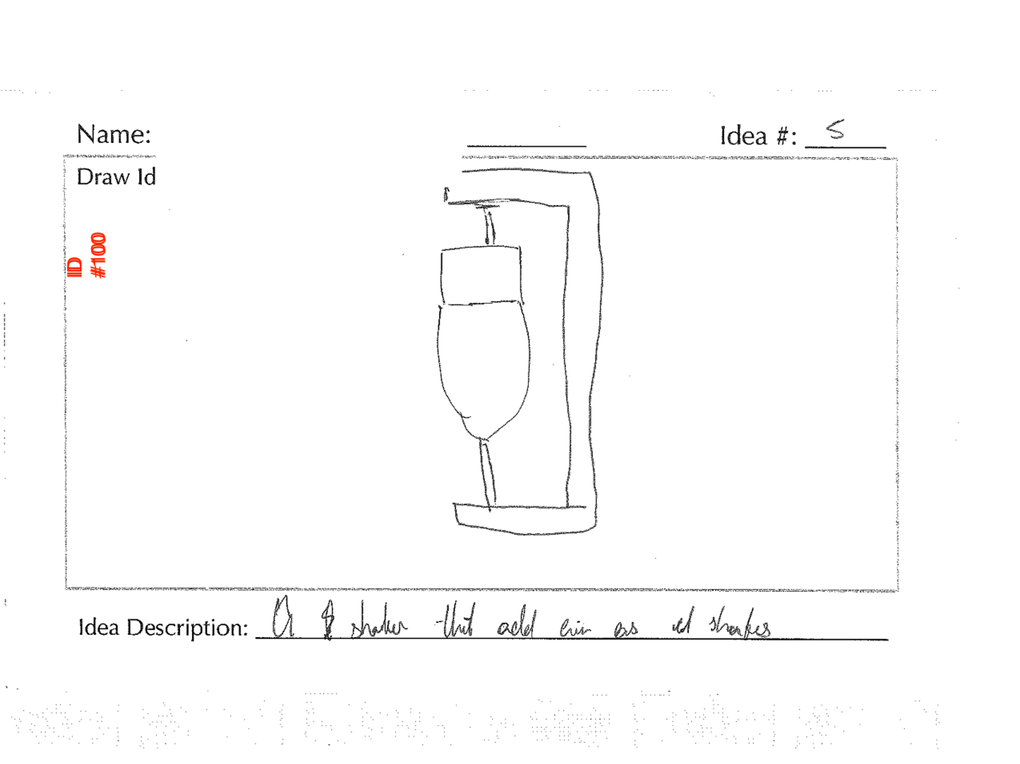 Name:
Idea #: 5
Draw Id
ID
#100
Idea Description: A shaker that add as it shakes